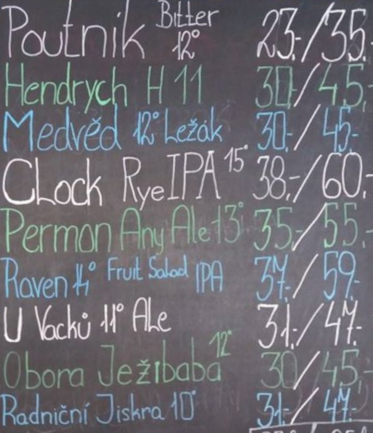 Poutník Bitter 12° 23,-/35,-
Hendrych H 11 30,-/45,-
Medvěd 12° Ležák 30,-/45,-
CLock Rye IPA 15° 38,-/60,-
Permon Any Ale 13° 35,-/55,-
Raven 14° Fruit Salad IPA 37,-/59,-
U Vacků 11° Ale 31,-/47,-
Obora Ježibaba 12° 30/45,-
Radniční Jiskra 10° 31,-/47,-